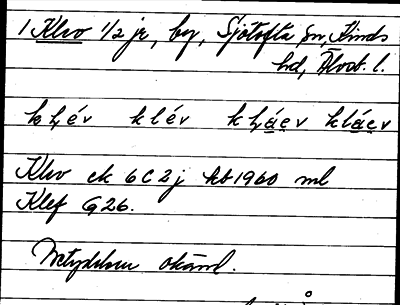 1 Klev 1/2 je, by, Sjötofta sn, Kinds
hd, Älvsb. l.
kḷév klév kḷáev kláev
Klev ek 6C2j kb 1960 ml
Klef G26.
Betydelsen okänd.